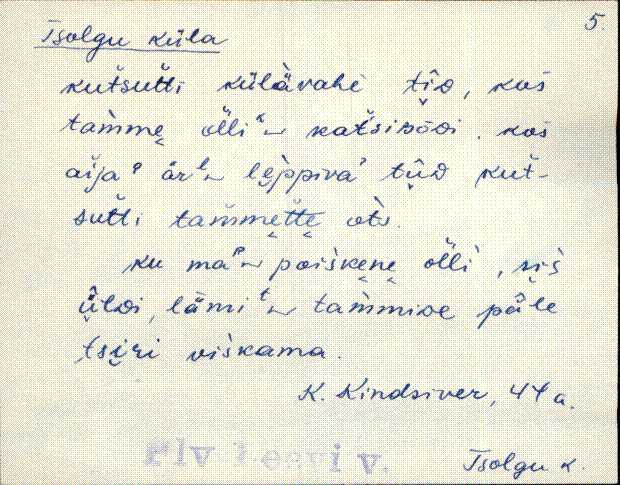 5
Tsolgu küla
kutsutti külävahe tîD, kos
tamme olli katsisõDi. kos
aija är leppiva' tüD kut-
sutti tammette ots.
ku ma poiskene olli, sis
ülDi, lämi tammiDe päle
tsiri viskama.
K. Kindsiver, 44 a.
Plv Leevi v.
Tsolgu k.